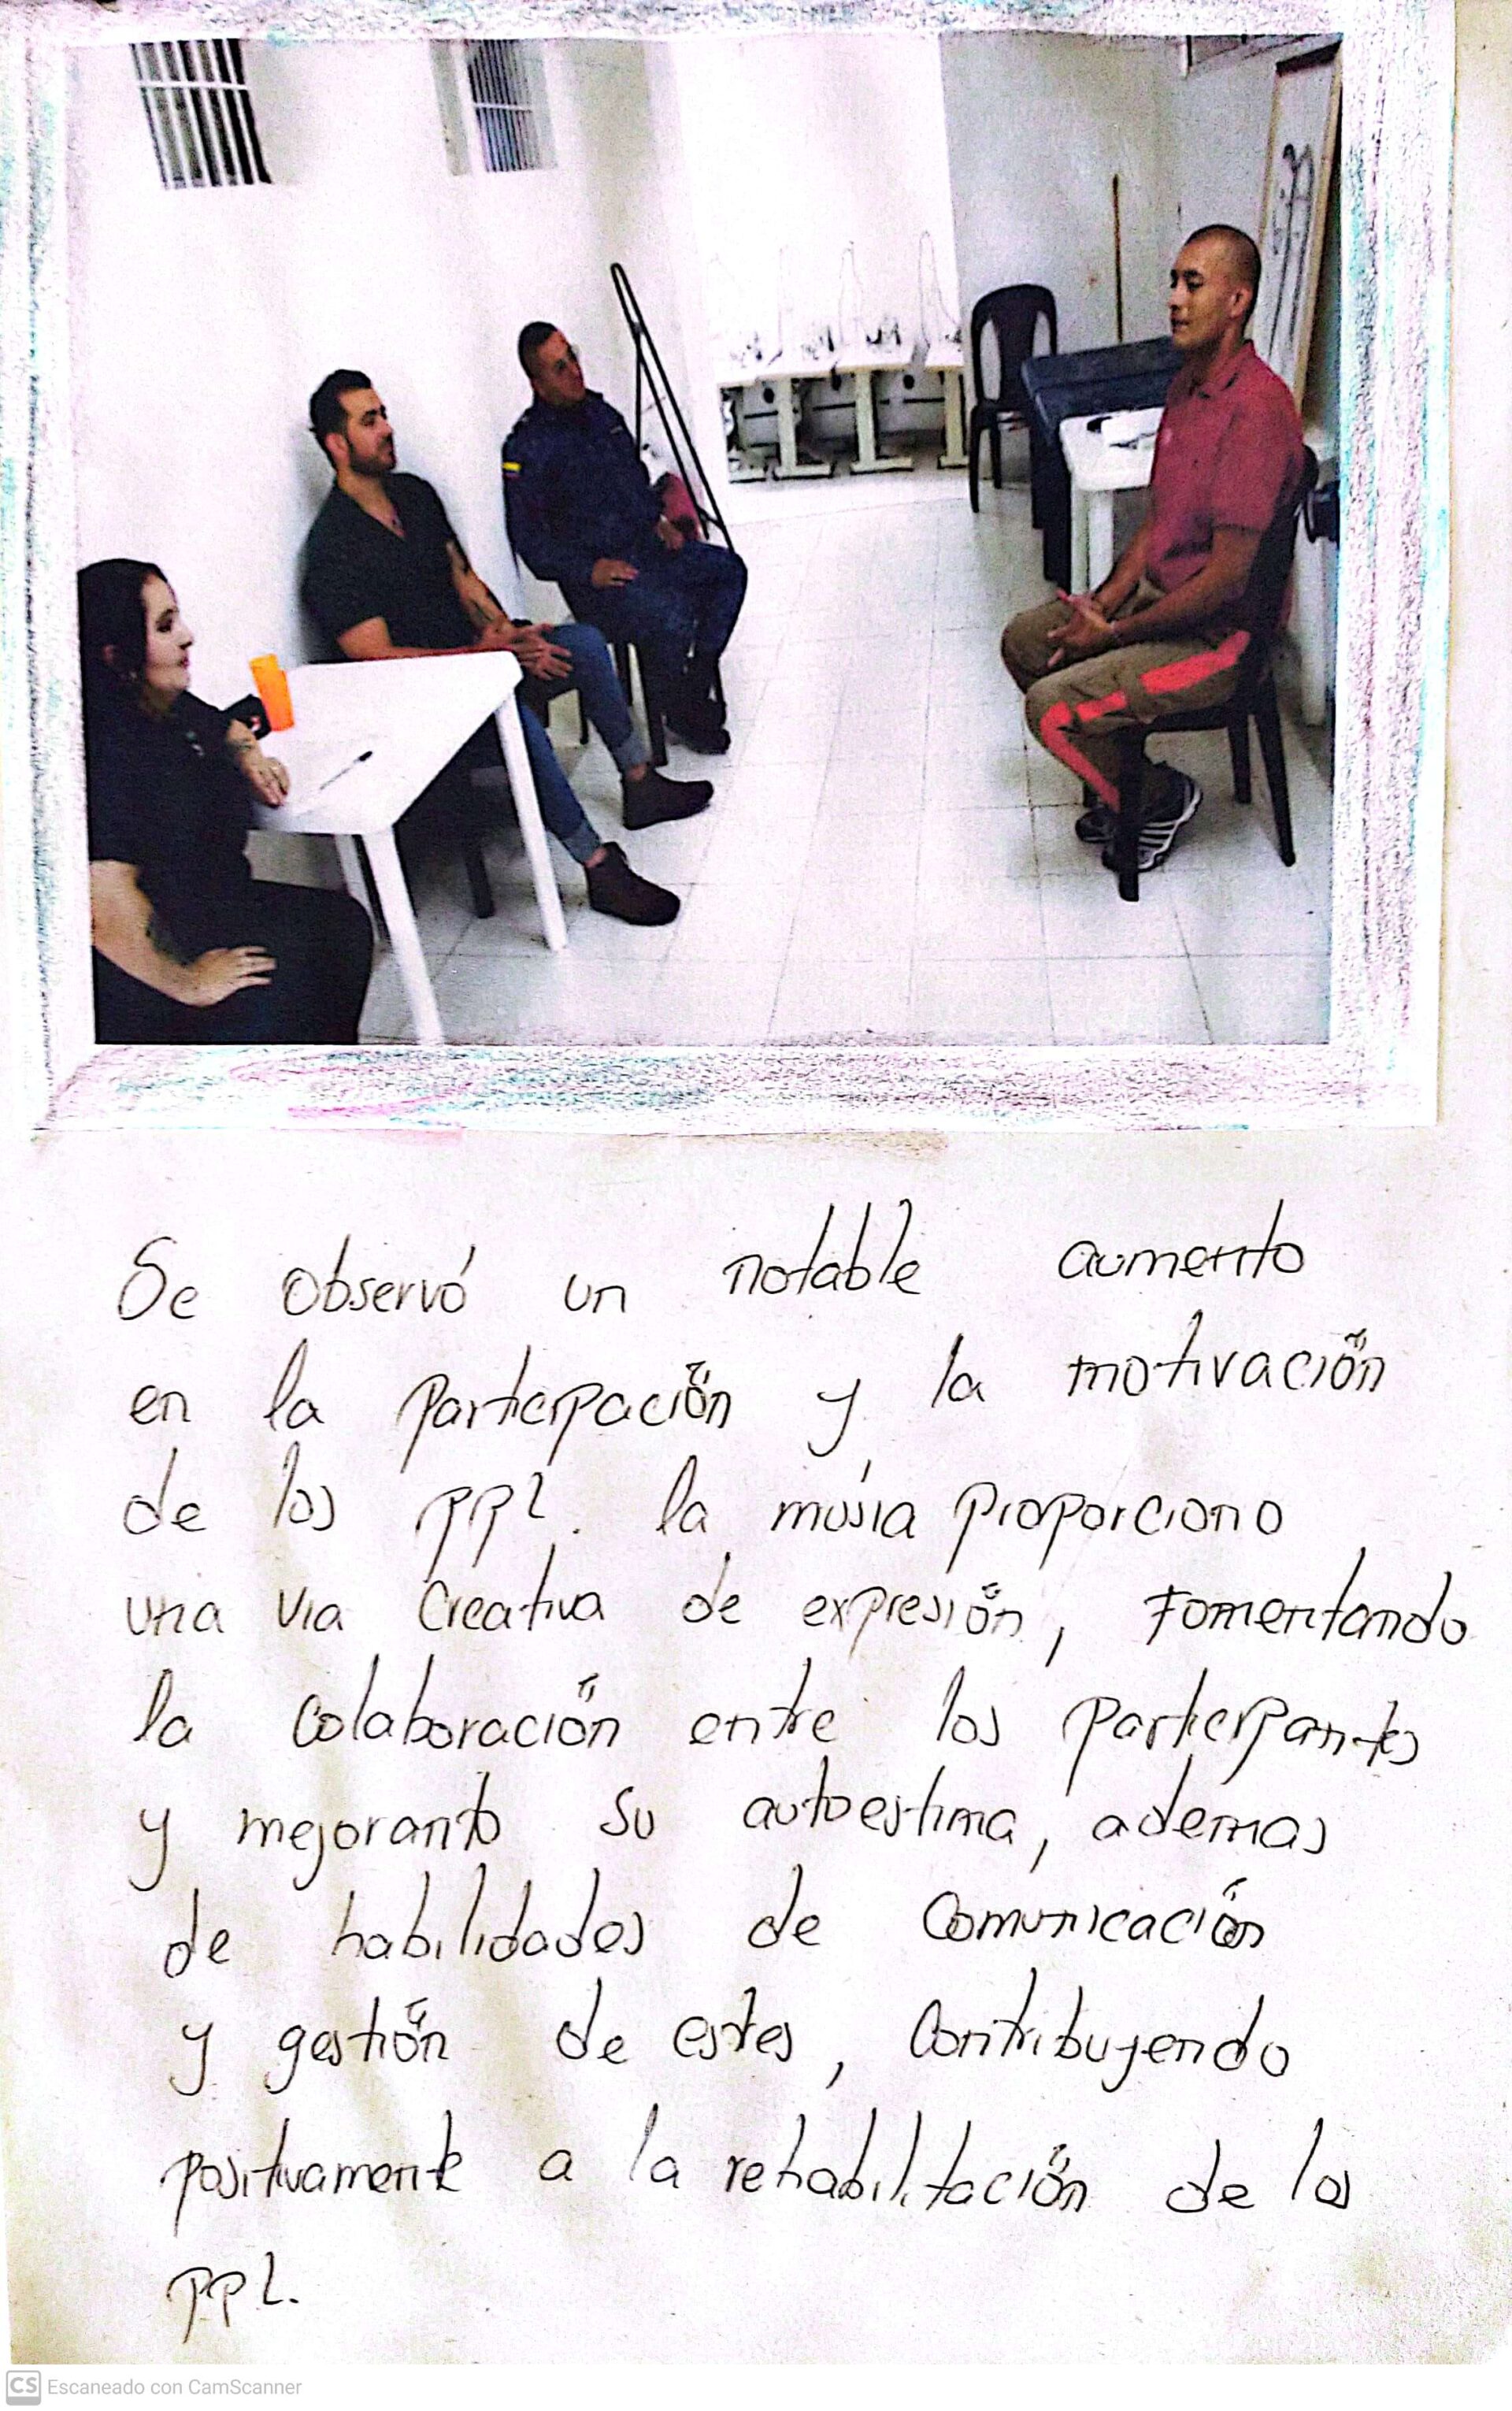 Se observó un notable aumento
en la participación y la motivación
de los PPL. la músia proporciono
una via creativa de expresión, Fomentando
la colaboración entre los participantes
y mejoranto su autoestima, ademas
de habilidades de comunicación
y gestión de estes, contribuyendo
positivamente a la rehabilitación de los
PPL.
CS Escaneado con CamScanner